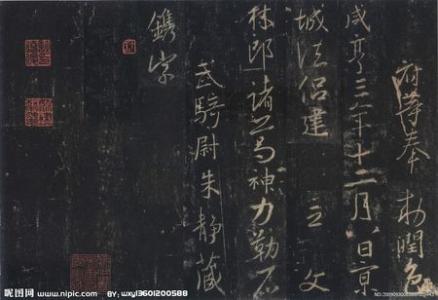 府等奉 敕潤色
咸亨三年十二月八日京
城法侶建立 文
林郎諸葛神力勒石
武騎尉朱靜藏
鐫字
昵图网 www.nipic.com BY: wxy13601200588